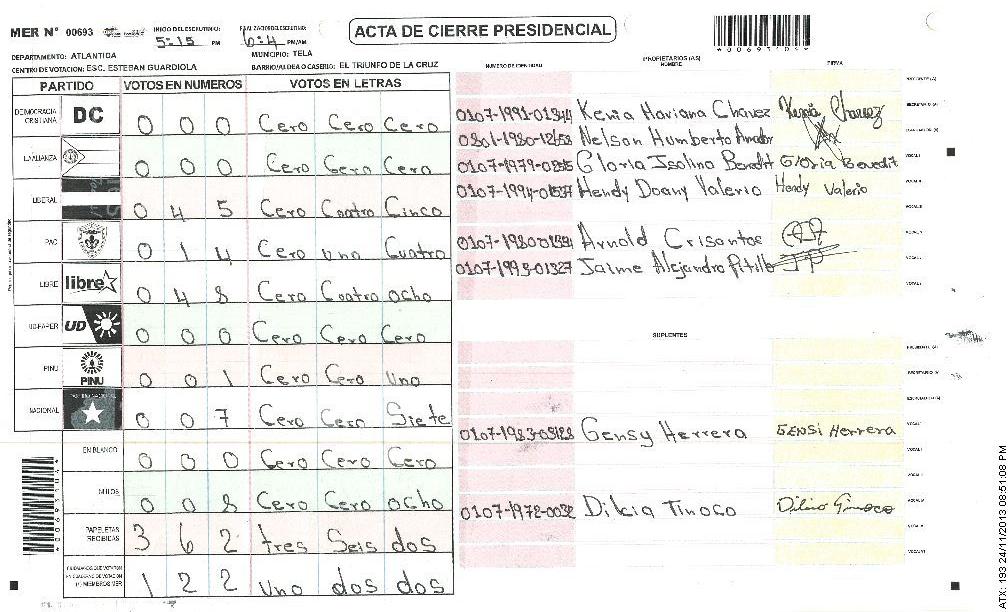 MER N° 00693
INICIO DEL ESCRUTINIO: 5:15 PM
6:4 PM/AM
ACTA DE CIERRE PRESIDENCIAL
*00693104*
DEPARTAMENTO: ATLANTIDA
MUNICIPIO: TELA
CENTRO DE VOTACION: ESC. ESTEBAN GUARDIOLA
BARRIO/ALDEA O CASERIO: EL TRIUNFO DE LA CRUZ
PARTIDO VOTOS EN NUMEROS VOTOS EN LETRAS
DEMOCRACIA CRISTIANA DC 0 0 0 Cero Cero Cero
0 0 0 Cero Cero Cero
LIBERAL 0 4 5 Cero Cuatro Cinco
PAC 0 1 4 Cero uno Cuatro
LIBRE libre 0 4 8 Cero Cuatro ocho
UD-FAPER UD 0 0 0 Cero Cero Cero
PINU PINU 0 0 1 Cero Cero uno
NACIONAL PARTIDO NACIONAL 0 0 7 Cero Cero Siete
EN BLANCO 0 0 0 Cero Cero Cero
NULOS 0 0 8 Cero Cero ocho
PAPELETAS RECIBIDAS 3 6 2 tres Seis dos
1 2 2 uno dos dos
NUMERO DE IDENTIDAD PROPIETARIOS (AS) NOMBRE FIRMA
Kenia Mariana Chavez
Nelson Humberto Amador
Gloria Isolina Benedit Gloria Benedit
Hendy Doany Valerio Hendy Valerio
Arnold Crisantos
0107-1993-01327 Jaime Alejandro JP
SUPLENTES
Gensy Herrera GENSI Herrera
Dilcia Tinoco
ATX: 193 24/11/2013 08:51:08 PM